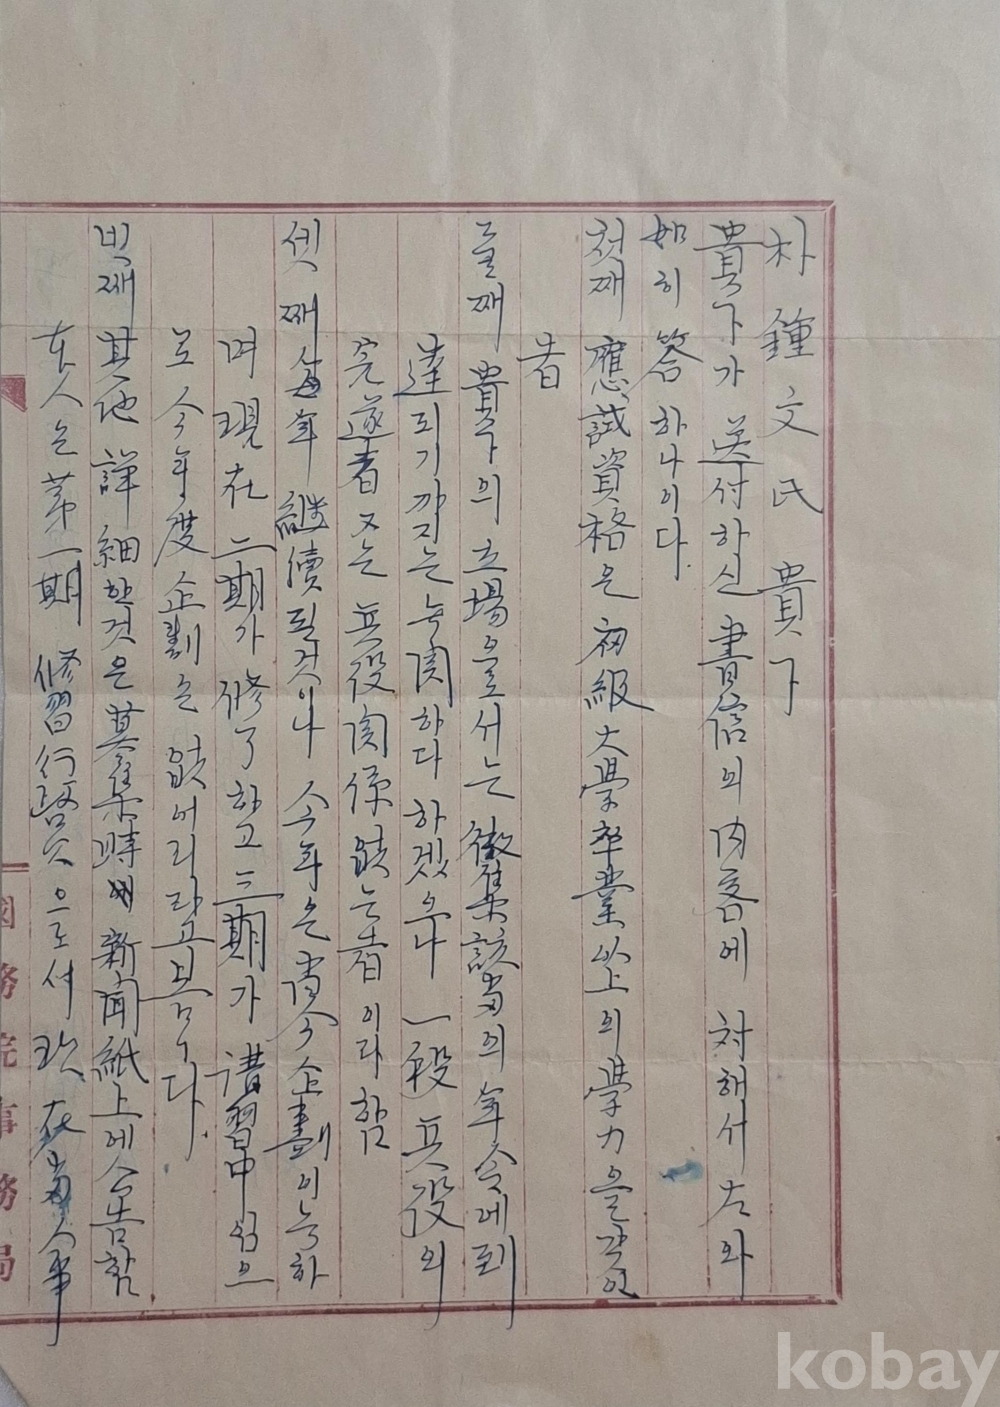 朴鍾文氏 貴下
貴下가 送付하신 書信의 內容에 対해서 左와
如히 答하나이다.
첫째 應試資格은 初級大學卒業以上의 學力을 갖인
者
둘째 貴下의 立場으로서는 徵集該當의 年令에 到
達되기까지는 누関하다 하겠으나 一般兵役의
完遂者 又는 兵役関係 없는者이라함
셋째 每年 継續될것이나 今年은 尙今 企劃이 하
며 現在 二期가 修了하고 三期가 講習中임으
로 今年度企劃은 없어리라고 봄니다.
넷째 其他 詳細한것은 募集時에 新聞紙上에 公告함
本人은 第一期 修習行 으로서 現在 當人事
國務院事務局
kobay